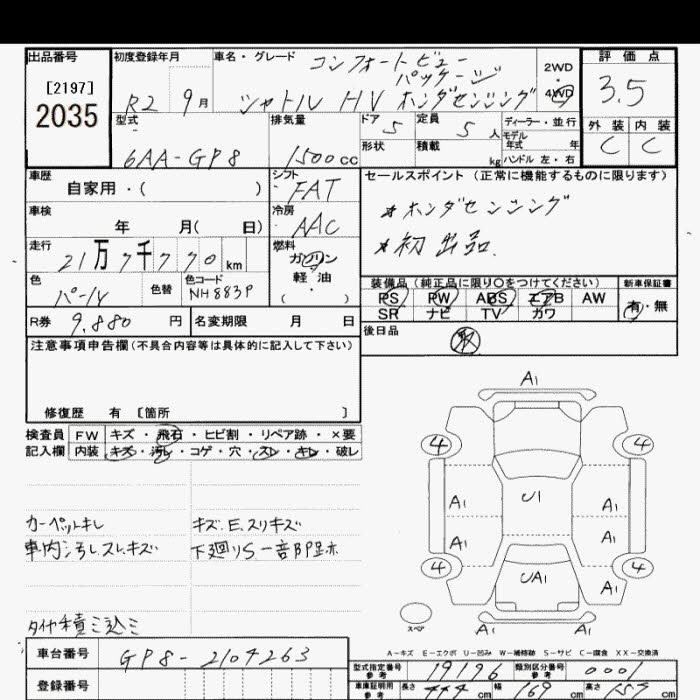 出品番号
[2197]
2035
初度登録年月
R2 9月
車名・グレード
コンフォートビュー
パッケージ
シャトル HV ホンダセンシング
2WD
・
4WD
評価点
3.5
外装 内装
C C
型式
6AA-GP8
排気量
1500cc
ドア 5
定員 5人
形状
積載 kg
ディーラー・並行
モデル
年式 年
ハンドル 左・右
車歴
自家用・( )
シフト
FAT
車検
年 月( 日)
冷房
AAC
走行
21万7千770km
燃料
ガソリン
軽・油
( )
色
パール
色替
色コード
NH883P
R券 9,880円
名変期限 月 日
セールスポイント(正常に機能するものに限ります)
*ホンダセンシング
*初出品
装備品(純正品に限り○をつけてください)
PS PW ABS エアB AW
SR ナビ TV カワ
新車保証書
有・無
後日品
取
注意事項申告欄(不具合内容等は具体的に記入して下さい)
修復歴 有 [箇所 ]
検査員
記入欄
FW キズ・飛石・ヒビ割・リペア跡・×要
内装 キズ・汚レ・コゲ・穴・スレ・キレ・破レ
カーペットキレ
車内汚レスレキズ
キズ.E.スリキズ
下廻りS
タイヤ積ミ込ミ
A1
4 4
U1
A1 A1
A1 A1
4 4
UA1
A1
A1 A1
スペア
A-キズ E-エクボ U-凹み W-補修跡 S-サビ C-腐食 XX-交換済
車台番号 GP8-2104263
登録番号
型式指定番号
参考
19196
類別区分番号
参考
0001
車庫証明用
参考
長さ 444cm 幅 169cm 高さ